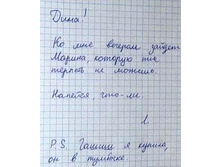 Дима!
Ко мне вечером зайдет
Марина, которую ты
терпеть не можешь.
Напейся, что-ли
Л.
P.S. Гашиш я купила,
он в тумбочке.